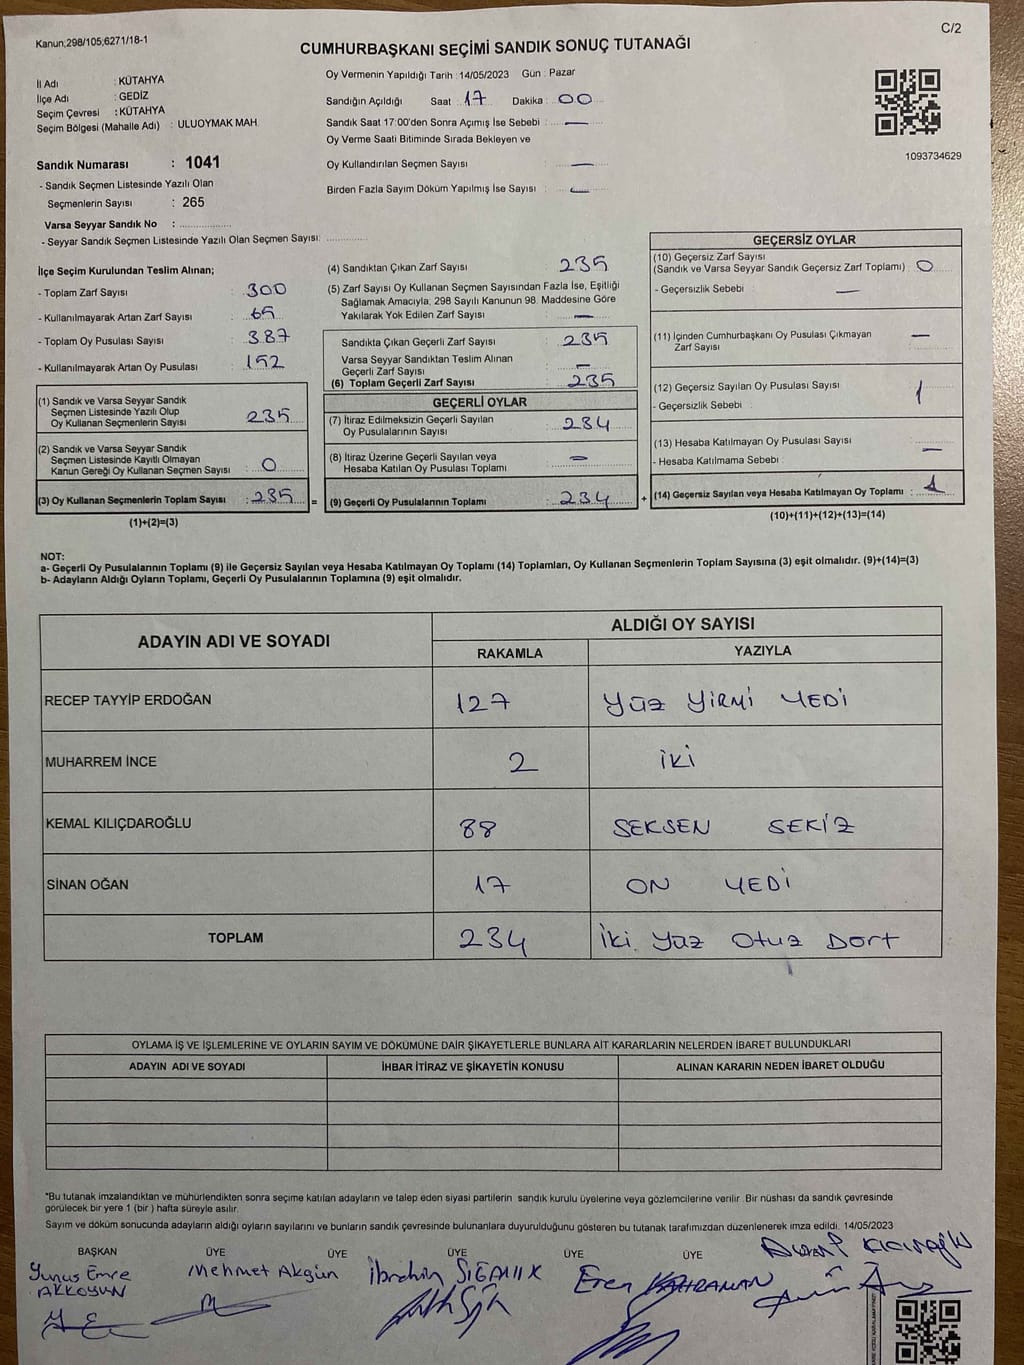 Kanun;298/105;6271/18-1
C/2
CUMHURBAŞKANI SEÇİMİ SANDIK SONUÇ TUTANAĞI
İl Adı : KÜTAHYA
İlçe Adı : GEDİZ
Seçim Çevresi : KÜTAHYA
Seçim Bölgesi (Mahalle Adı) : ULUOYMAK MAH.
Oy Vermenin Yapıldığı Tarih : 14/05/2023 Gün : Pazar
Sandığın Açıldığı Saat : 17 Dakika : 00
Sandık Saat 17:00'den Sonra Açımış İse Sebebi : —
Oy Verme Saati Bitiminde Sırada Bekleyen ve
Oy Kullandırılan Seçmen Sayısı : —
Birden Fazla Sayım Döküm Yapılmış İse Sayısı : —
1093734629
Sandık Numarası : 1041
- Sandık Seçmen Listesinde Yazılı Olan
Seçmenlerin Sayısı : 265
Varsa Seyyar Sandık No :
- Seyyar Sandık Seçmen Listesinde Yazılı Olan Seçmen Sayısı:
İlçe Seçim Kurulundan Teslim Alınan;
- Toplam Zarf Sayısı : 300
- Kullanılmayarak Artan Zarf Sayısı : 65
- Toplam Oy Pusulası Sayısı : 387
- Kullanılmayarak Artan Oy Pusulası : 152
(1) Sandık ve Varsa Seyyar Sandık
Seçmen Listesinde Yazılı Olup
Oy Kullanan Seçmenlerin Sayısı : 235
(2) Sandık ve Varsa Seyyar Sandık
Seçmen Listesinde Kayıtlı Olmayan
Kanun Gereği Oy Kullanan Seçmen Sayısı : 0
(3) Oy Kullanan Seçmenlerin Toplam Sayısı : 235 =
(1)+(2)=(3)
(4) Sandıktan Çıkan Zarf Sayısı : 235
(5) Zarf Sayısı Oy Kullanan Seçmen Sayısından Fazla İse, Eşitliği
Sağlamak Amacıyla; 298 Sayılı Kanunun 98. Maddesine Göre
Yakılarak Yok Edilen Zarf Sayısı : —
Sandıkta Çıkan Geçerli Zarf Sayısı : 235
Varsa Seyyar Sandıktan Teslim Alınan
Geçerli Zarf Sayısı : —
(6) Toplam Geçerli Zarf Sayısı : 235
GEÇERLİ OYLAR
(7) İtiraz Edilmeksizin Geçerli Sayılan
Oy Pusulalarının Sayısı : 234
(8) İtiraz Üzerine Geçerli Sayılan veya
Hesaba Katılan Oy Pusulası Toplamı : —
(9) Geçerli Oy Pusulalarının Toplamı : 234 +
GEÇERSİZ OYLAR
(10) Geçersiz Zarf Sayısı
(Sandık ve Varsa Seyyar Sandık Geçersiz Zarf Toplamı) : 0
- Geçersizlik Sebebi : —
(11) İçinden Cumhurbaşkanı Oy Pusulası Çıkmayan
Zarf Sayısı : —
(12) Geçersiz Sayılan Oy Pusulası Sayısı : 1
- Geçersizlik Sebebi :
(13) Hesaba Katılmayan Oy Pusulası Sayısı : —
- Hesaba Katılmama Sebebi :
(14) Geçersiz Sayılan veya Hesaba Katılmayan Oy Toplamı : 1
(10)+(11)+(12)+(13)=(14)
NOT:
a- Geçerli Oy Pusulalarının Toplamı (9) ile Geçersiz Sayılan veya Hesaba Katılmayan Oy Toplamı (14) Toplamları, Oy Kullanan Seçmenlerin Toplam Sayısına (3) eşit olmalıdır. (9)+(14)=(3)
b- Adayların Aldığı Oyların Toplamı, Geçerli Oy Pusulalarının Toplamına (9) eşit olmalıdır.
ADAYIN ADI VE SOYADI ALDIĞI OY SAYISI
RAKAMLA YAZIYLA
RECEP TAYYİP ERDOĞAN 127 Yüz YİRMİ YEDİ
MUHARREM İNCE 2 İKİ
KEMAL KILIÇDAROĞLU 88 SEKSEN SEKİZ
SİNAN OĞAN 17 ON YEDİ
TOPLAM 234 İki Yüz Otuz Dort
OYLAMA İŞ VE İŞLEMLERİNE VE OYLARIN SAYIM VE DÖKÜMÜNE DAİR ŞİKAYETLERLE BUNLARA AİT KARARLARIN NELERDEN İBARET BULUNDUKLARI
ADAYIN ADI VE SOYADI İHBAR İTİRAZ VE ŞİKAYETİN KONUSU ALINAN KARARIN NEDEN İBARET OLDUĞU
*Bu tutanak imzalandıktan ve mühürlendikten sonra seçime katılan adayların ve talep eden siyasi partilerin sandık kurulu üyelerine veya gözlemcilerine verilir. Bir nüshası da sandık çevresinde
görülecek bir yere 1 (bir ) hafta süreyle asılır.
Sayım ve döküm sonucunda adayların aldığı oyların sayılarını ve bunların sandık çevresinde bulunanlara duyurulduğunu gösteren bu tutanak tarafımızdan düzenlenerek imza edildi. 14/05/2023
BAŞKAN ÜYE ÜYE ÜYE ÜYE ÜYE
Yunus Emre
AKKOYUN
Mehmet Akgün
İbrahim
Eren KAHRAMAN